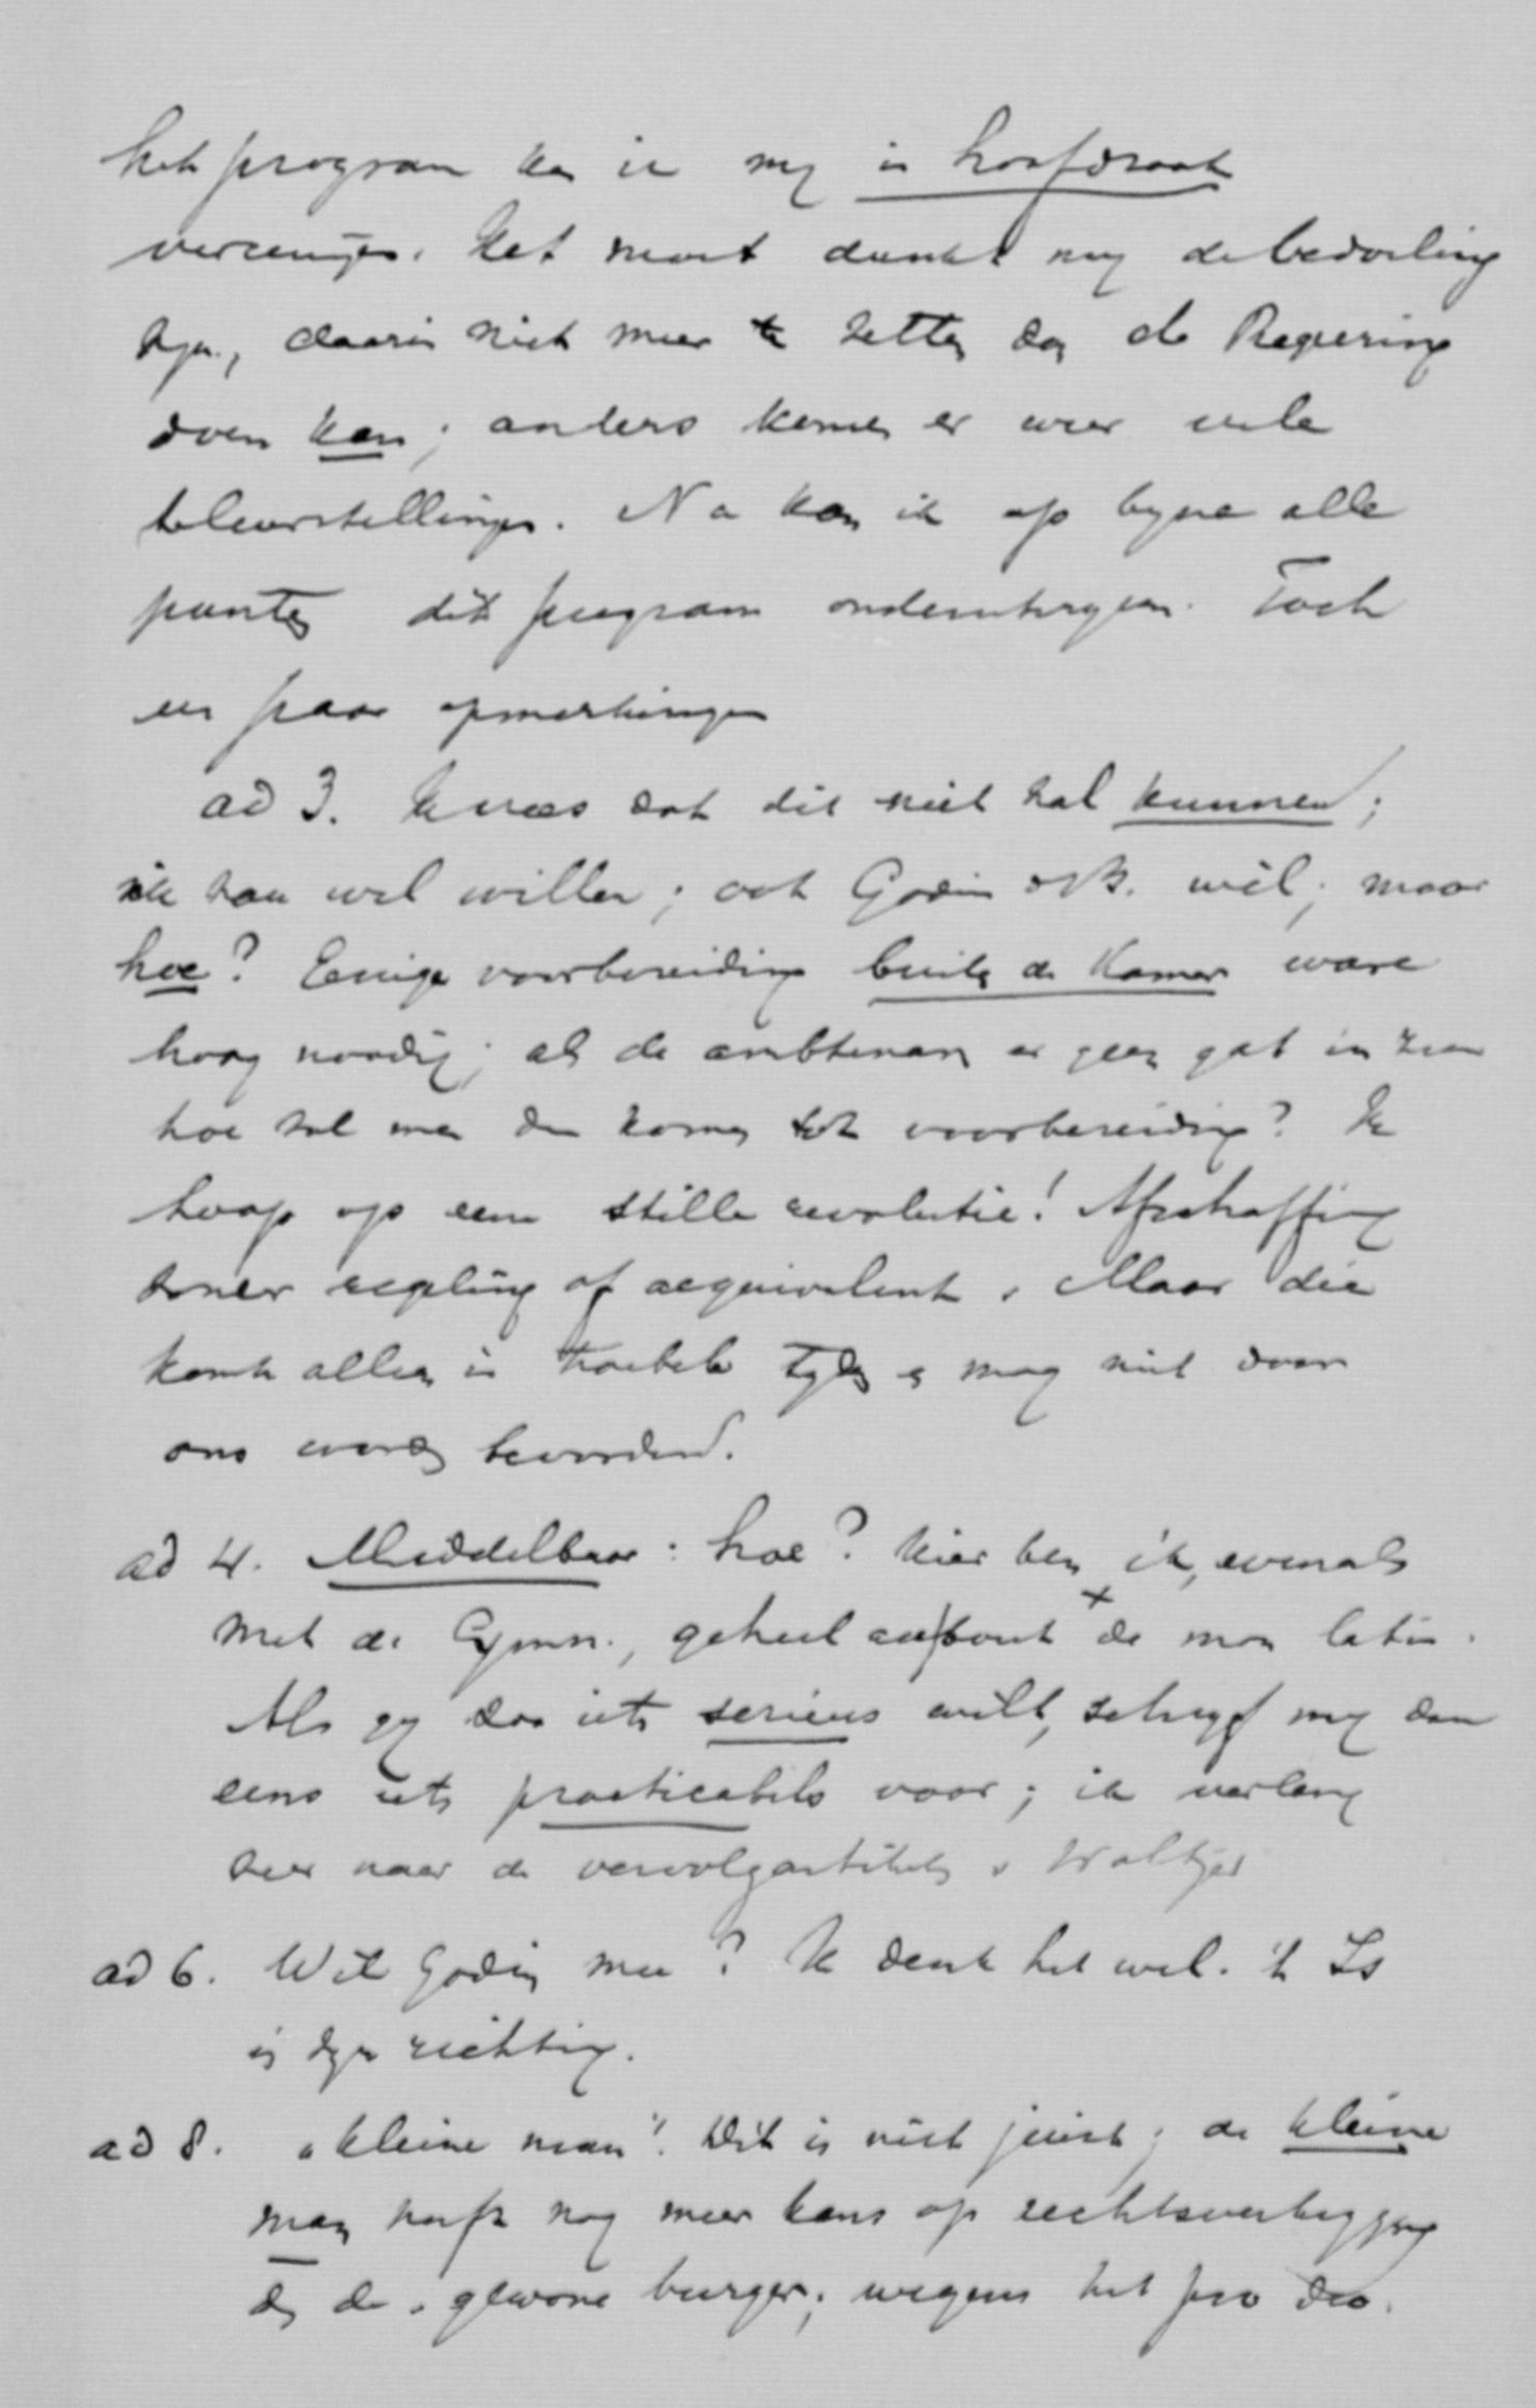 het program kan ik mij in hoofdzaak
vereenigen. Het moet dunkt mij de bedoeling
zijn, daarin niet meer te zetten dan de Regeering
doen kan; anders komen er weer vele
teleurstellingen. Nu kan ik op bijna alle
punten dit program onderschrijven. Toch
een paar opmerkingen
ad 3. Ik vrees dat dit niet zal kunnen;
ik zou wel willen; ook Godin d.B. wil; maar
hoe? Eenige voorbereiding buiten de Kamer ware
hoog noodig; als de ambtenaren er geen gat in zien
hoe zal men dan komen tot voorbereiding? Ik
hoop op eene stille revolutie! Afschaffing
zonder regeling of aequivalent. Maar die
komt alleen in troebele tijden en mag niet door
ons worden bevorderd.
ad 4. Middelbaar: hoe? Hier ben ik, evenals
met de Gymn., geheel au bout de mon latin.
Als gij dus iets serieus wilt, schrijf mij dan
eens iets practicabels voor; ik verlang
zeer naar de vervolgartikelen v Woltjer
ad 6. Wil Godin mee? Ik denk het wel. 't Is
in zijn richting.
ad 8. "kleine man". Dit is niet juist; de kleine
man heeft nog meer kans op rechtsverkrijging
dan de gewone burger; wegens het pro Deo.